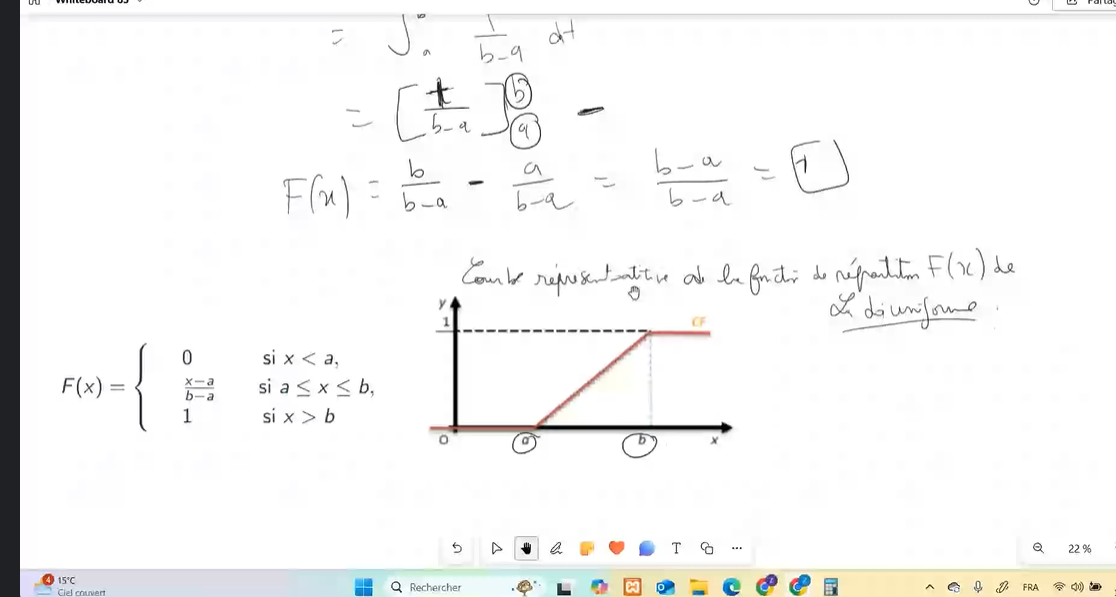 Whiteboard 03
= ∫ₐᵇ 1/(b-a) dt
= [t/(b-a)] b a -
F(x) = b/(b-a) - a/(b-a) = (b-a)/(b-a) = 1
Courbe réprésentative de la fonction de répartition F(x) de
La loi uniforme.
y
1
CF
F(x) = { 0 si x < a,
x-a/b-a si a ≤ x ≤ b,
1 si x > b
0 a b x
T
22 %
4
15°C
Ciel couvert
Rechercher
FRA